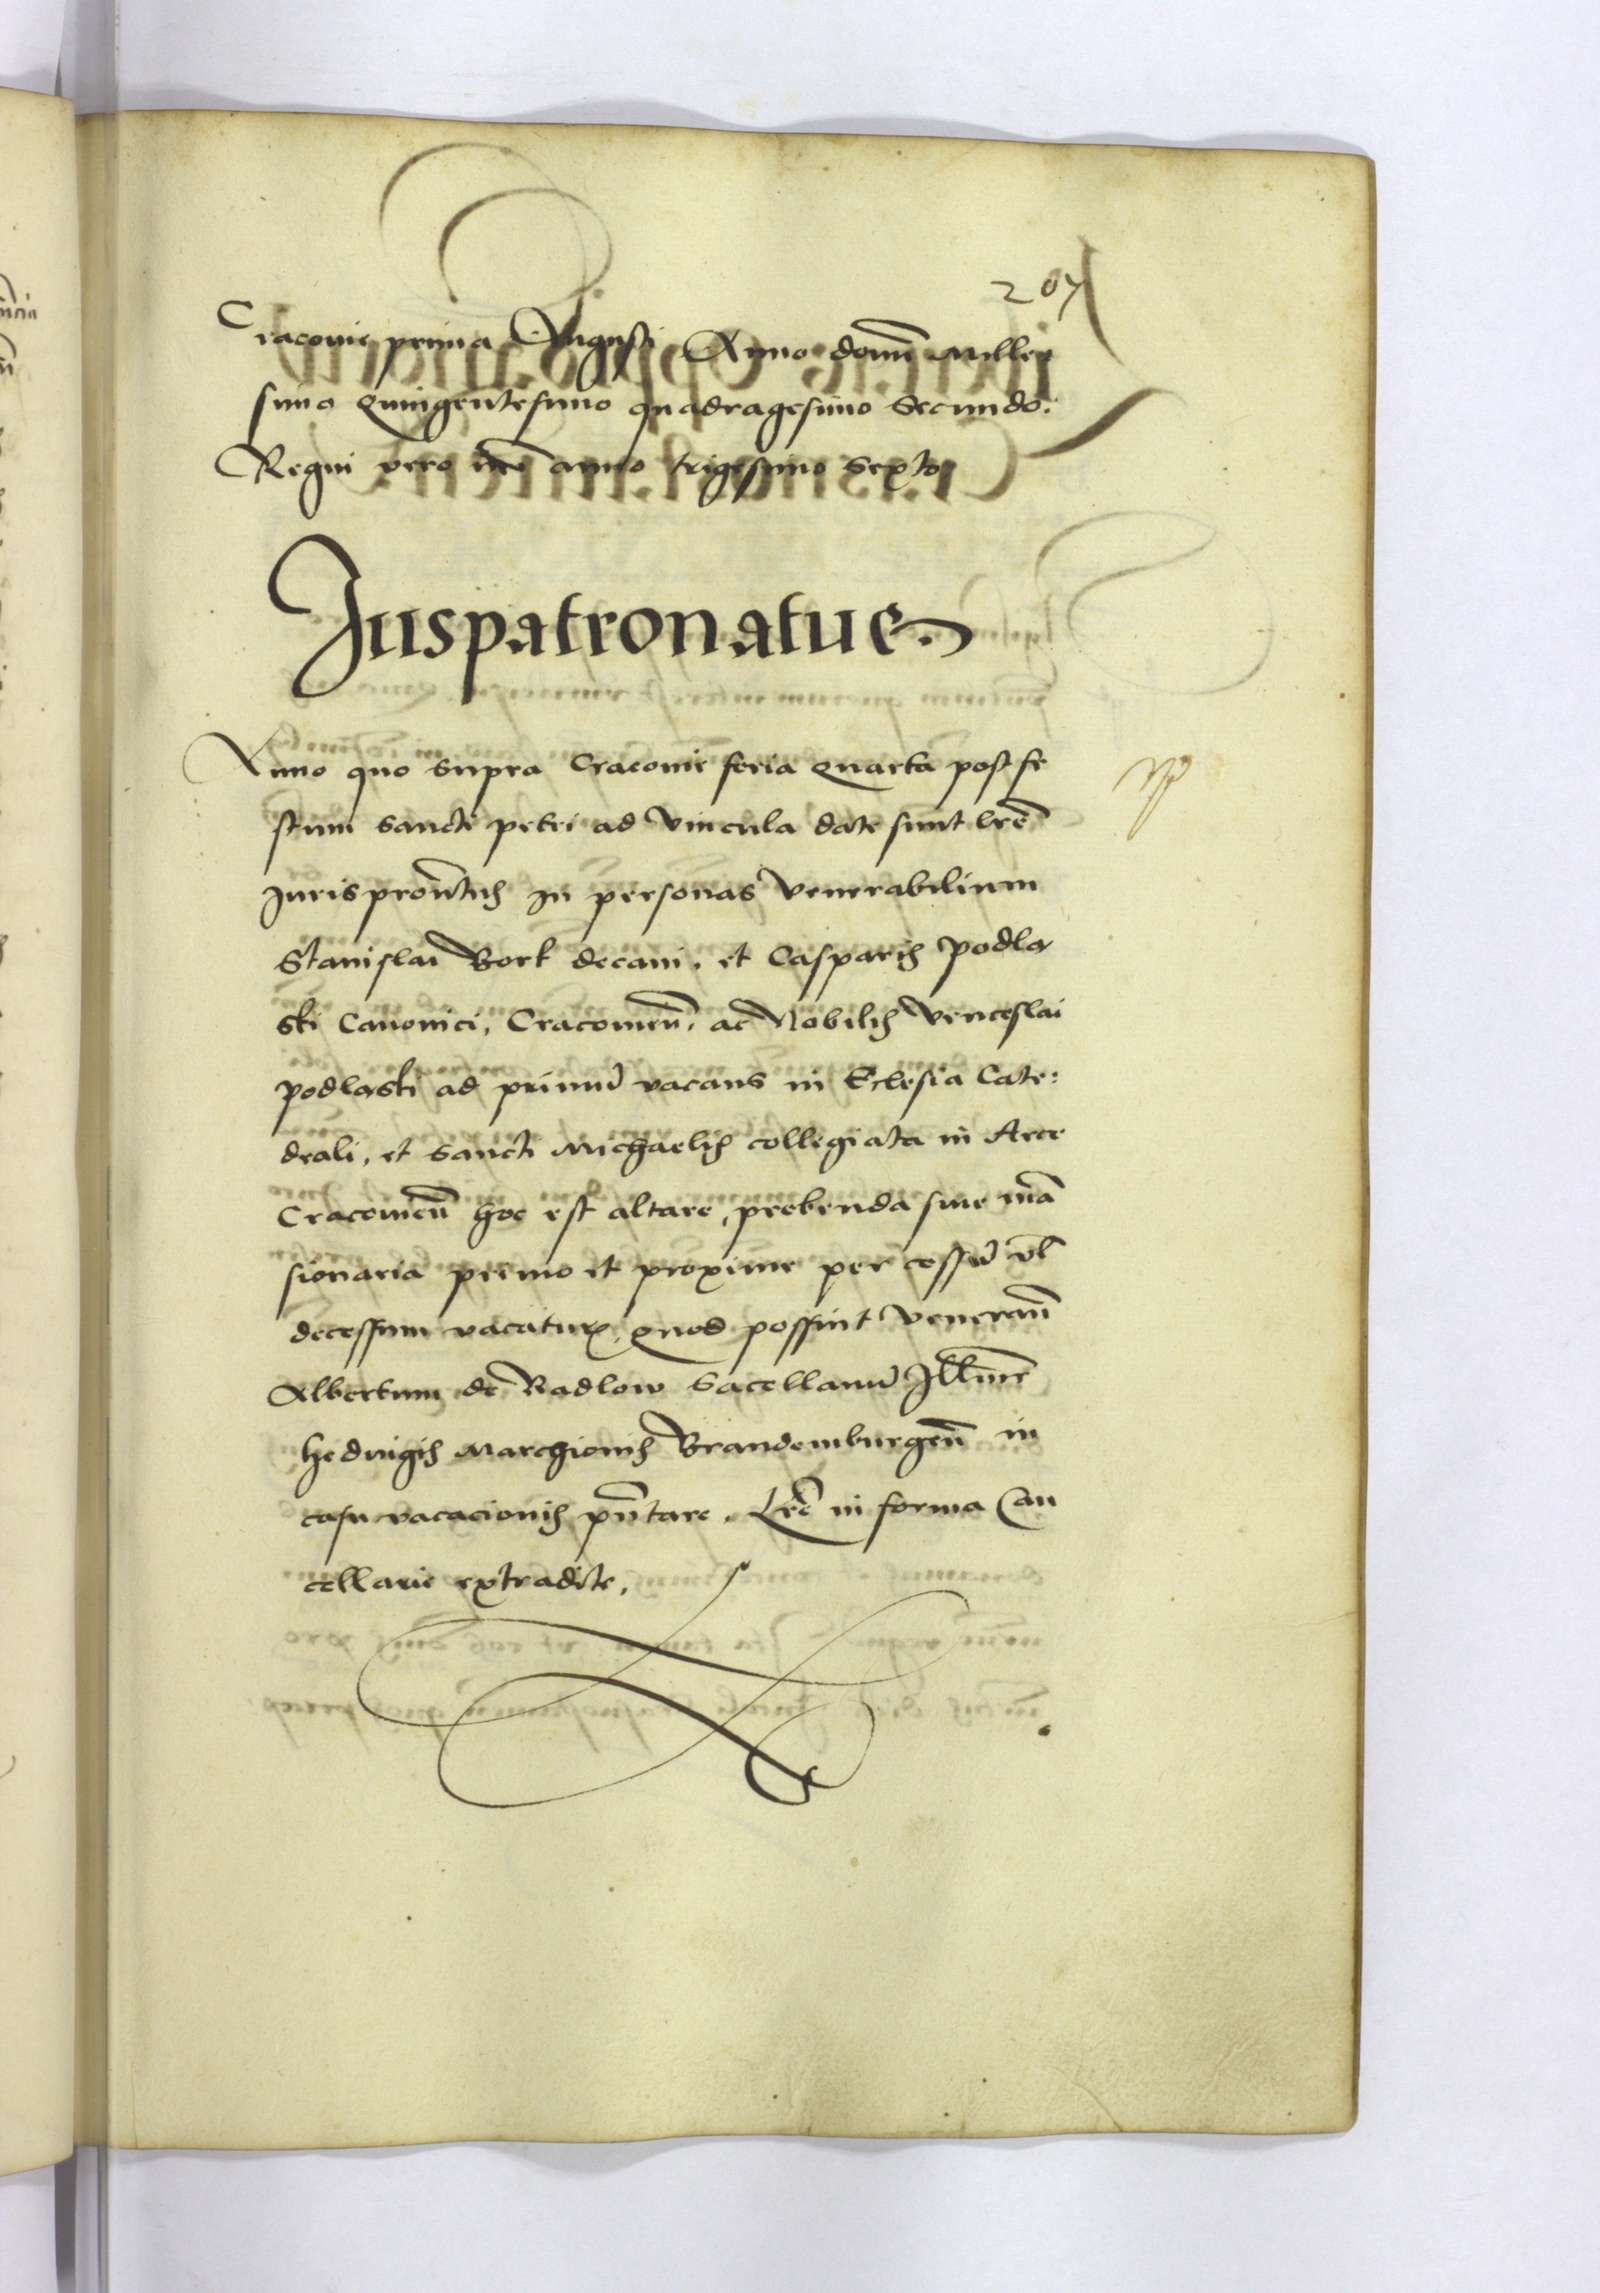 207
Cracovie prima Augusti Anno domī Mille
simo Quingentesimo quadragesimo Secundo.
Regni vero nrō anno trigesimo Sexto
Juspatronatus
Anno quo supra Cracovie feria Quarta post fe
stum Sancti petri ad Vincula date sunt lrē
Jurispronātus in personas Venerabilium
Stanislai Bork decani, et Casparis Podla
ski Canonici, Cracovien̄, ac Nobilis Venceslai
podlaski ad primū vacans in Eclesia Cate:
drali, et Sancti Michaelis collegiata in Arce
Cracovien̄ hoc est altare, prebenda sive mā
sionaria primo et proxime per cessū vl̄
decessum vacaturū, Quod possint Veneran̄
Albertum de Radlow Sacellanū Illūme
hedvigis Marchionis Brandemburgen̄ in
casu vacacionis pn̄tare. Lrē in forma Can
cellarie extradite.